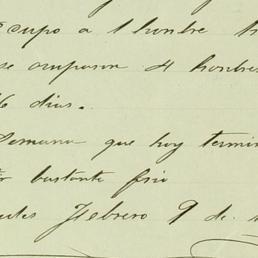 cupo a 1 hombre
se ocuparon 4 hombre
6 dias.
Semana que hoy termin
bastante frio
Febrero 9 de